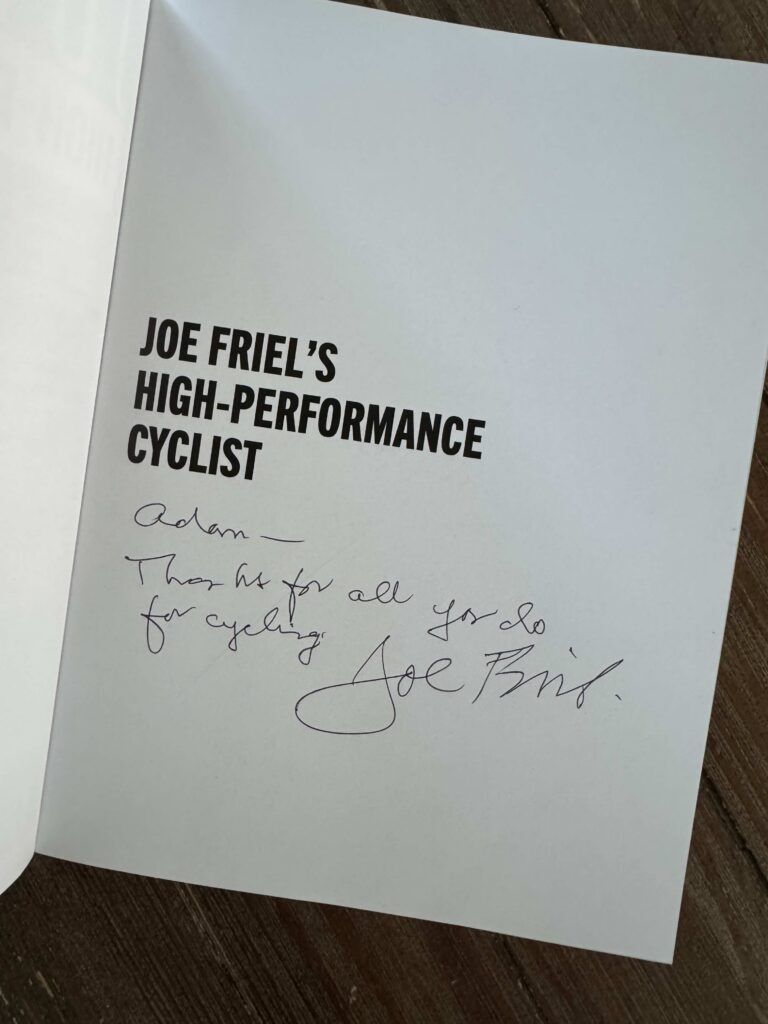 JOE FRIEL'S
HIGH-PERFORMANCE
CYCLIST
Adam —
Thanks for all you do
for cycling.
Joe Friel.